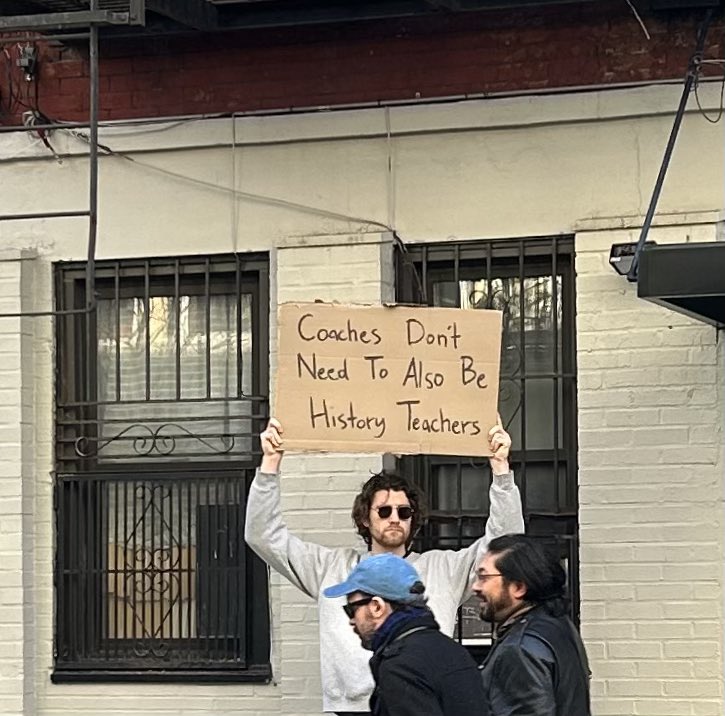 Coaches Don't
Need To Also Be
History Teachers